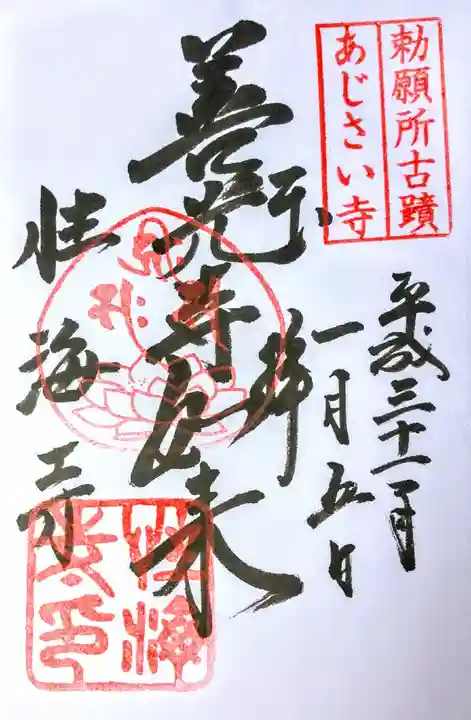 勅願所古蹟
あじさい寺
平成三十一年
一月五日
奉拝
善光寺如来
性海寺